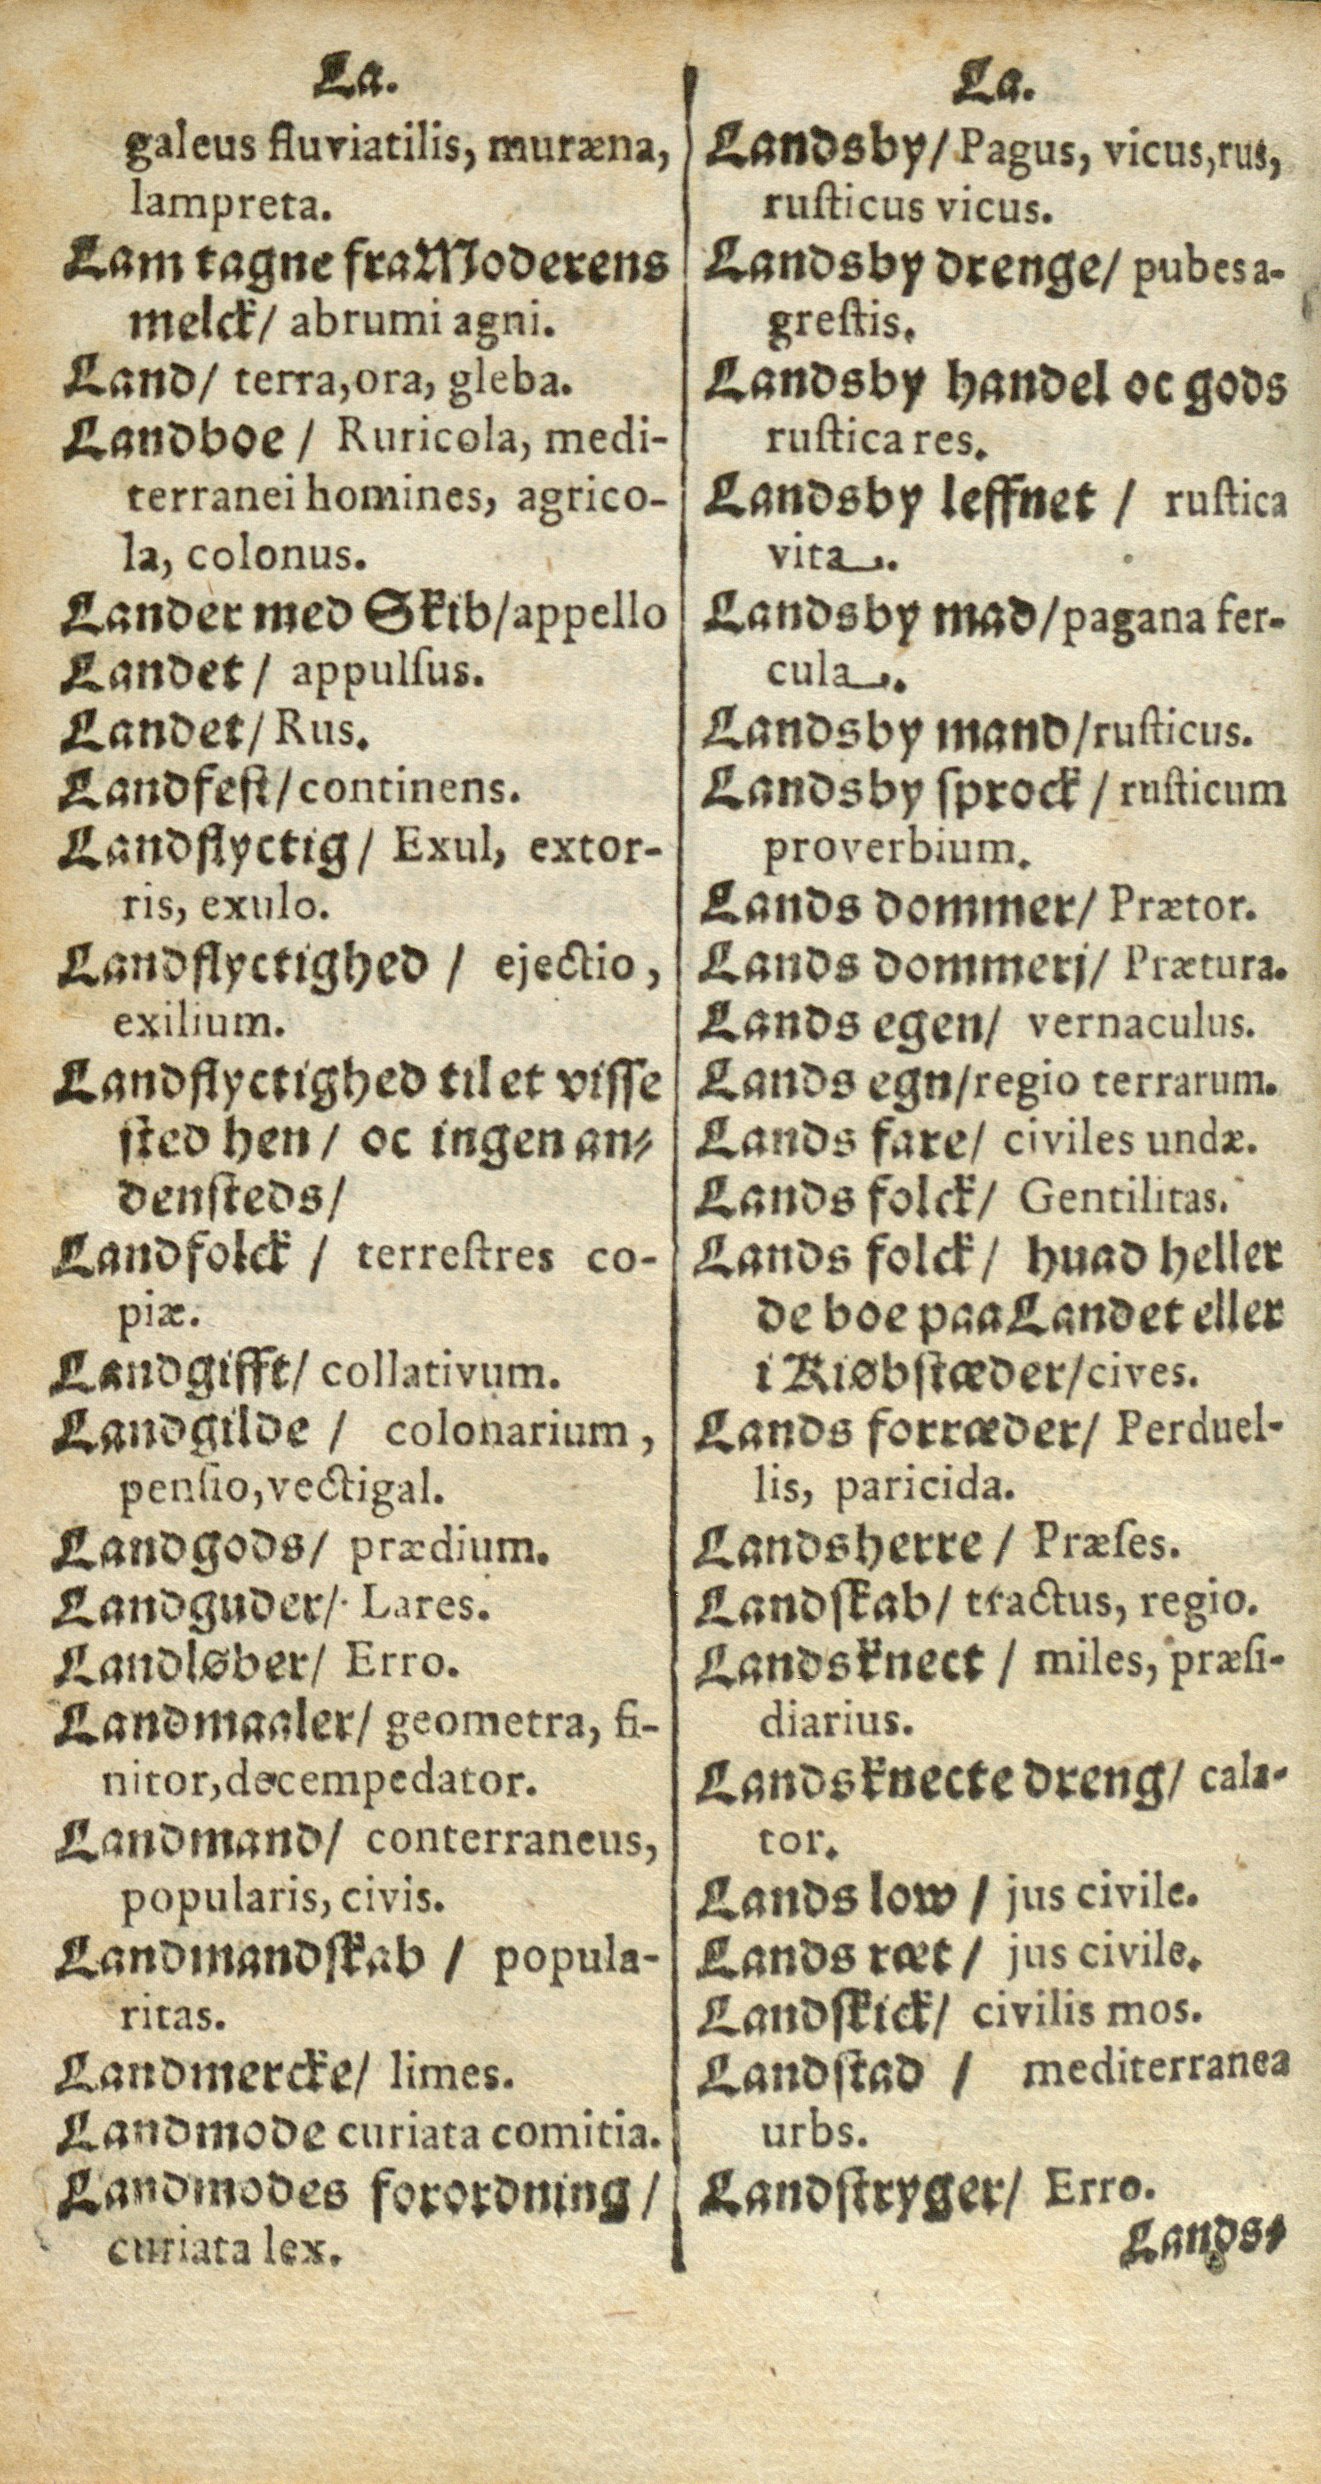 La.
galeus fluviatilis, muræna,
lampreta.
Lam tagne fra Moderens
melck/ abrumi agni.
Land/ terra, ora, gleba.
Landboe / Ruricola, medi-
terranei homines, agrico-
la, colonus.
Lander med Skib/appello
Landet / appulſus.
Landet/ Rus.
Landfeſt/continens.
Landflyctig/ Exul, extor-
ris, exulo.
Landflyctighed / ejectio,
exilium.
Landflyctighed til et viſſe
ſted hen / oc ingen an-
denſteds/
Landfolck / terreſtres co-
piæ.
Landgifft/ collativum.
Landgilde / colonarium,
penſio, vectigal.
Landgods/ prædium.
Landguder/ Lares.
Landløber/ Erro.
Landmaaler/ geometra, fi-
nitor, decempedator.
Landmand/ conterraneus,
popularis, civis.
Landmandſkab / popula-
ritas.
Landmercke/ limes.
Landmode curiata comitia.
Landmodes forordning/
curiata lex.
La.
Landsby/ Pagus, vicus, rus,
ruſticus vicus.
Landsby drenge/ pubes a-
greſtis.
Landsby handel oc gods
ruſtica res.
Landsby leffnet / ruſtica
vita.
Landsby mad/pagana fer-
cula.
Landsby mand/ruſticus.
Landsby ſprock / ruſticum
proverbium.
Lands dommer/ Prætor.
Lands dommerj/ Prætura.
Lands egen/ vernaculus.
Lands egn/regio terrarum.
Lands fare/ civiles undæ.
Lands folck/ Gentilitas.
Lands folck/ huad heller
de boe paa Landet eller
i Kiøbſtæder/cives.
Lands forræder/ Perduel-
lis, paricida.
Landsherre / Præſes.
Landſkab/ tractus, regio.
Landsknect / miles, præſi-
diarius.
Landsknecte dreng/ cala-
tor.
Lands low / jus civile.
Lands ræt / jus civile.
Landſkick/ civilis mos.
Landſtad / mediterranea
urbs.
Landſtryger/ Erro.
Lands-